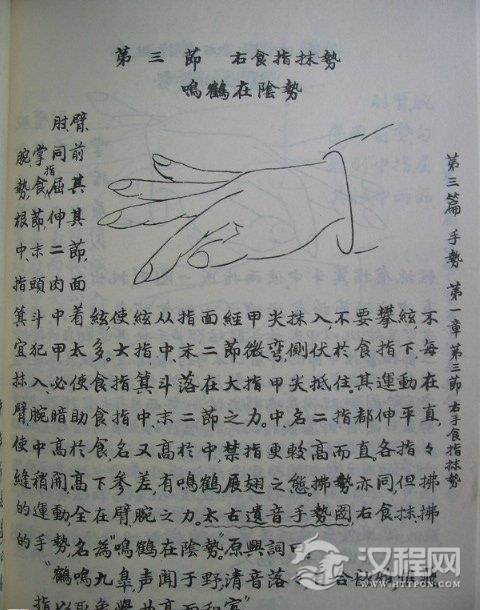 第三節 右食指抹勢
鳴鶴在陰勢
肘、臂、
腕、掌同前
勢,食指屈其
根節,伸其
中、末二節,
指頭肉面
箕斗中着絃,使絃从指面經甲尖抹入,不要攀絃,不
宜犯甲太多。大指中、末二節微彎,側伏於食指下,每
抹入,必使食指箕斗落在大指甲尖抵住。其運動在
臂腕暗助食指中、末二節之力。中、名二指都伸平直,
使中高於食,名又高於中,禁指更較高而直。各指々
縫稍開,高下參差有鳴鶴展翅之態。拂勢亦同,但拂
的運動全在臂腕之力。太古遺音手勢圖,右食抹、拂
的手勢,名為"鳴鶴在陰勢"。原興詞曰
"鶴鳴九臯,声聞于野;清音落
指以取象
第三篇 手勢 第一章 第三節 右手食指抹勢
汉程网